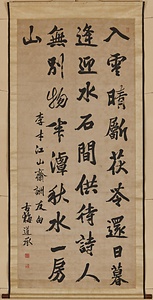 入雲晴斸茯苓還日暮
逢迎水石間供待詩人
無別物半潭秋水一房
山
李本江山齋訓友白
道承